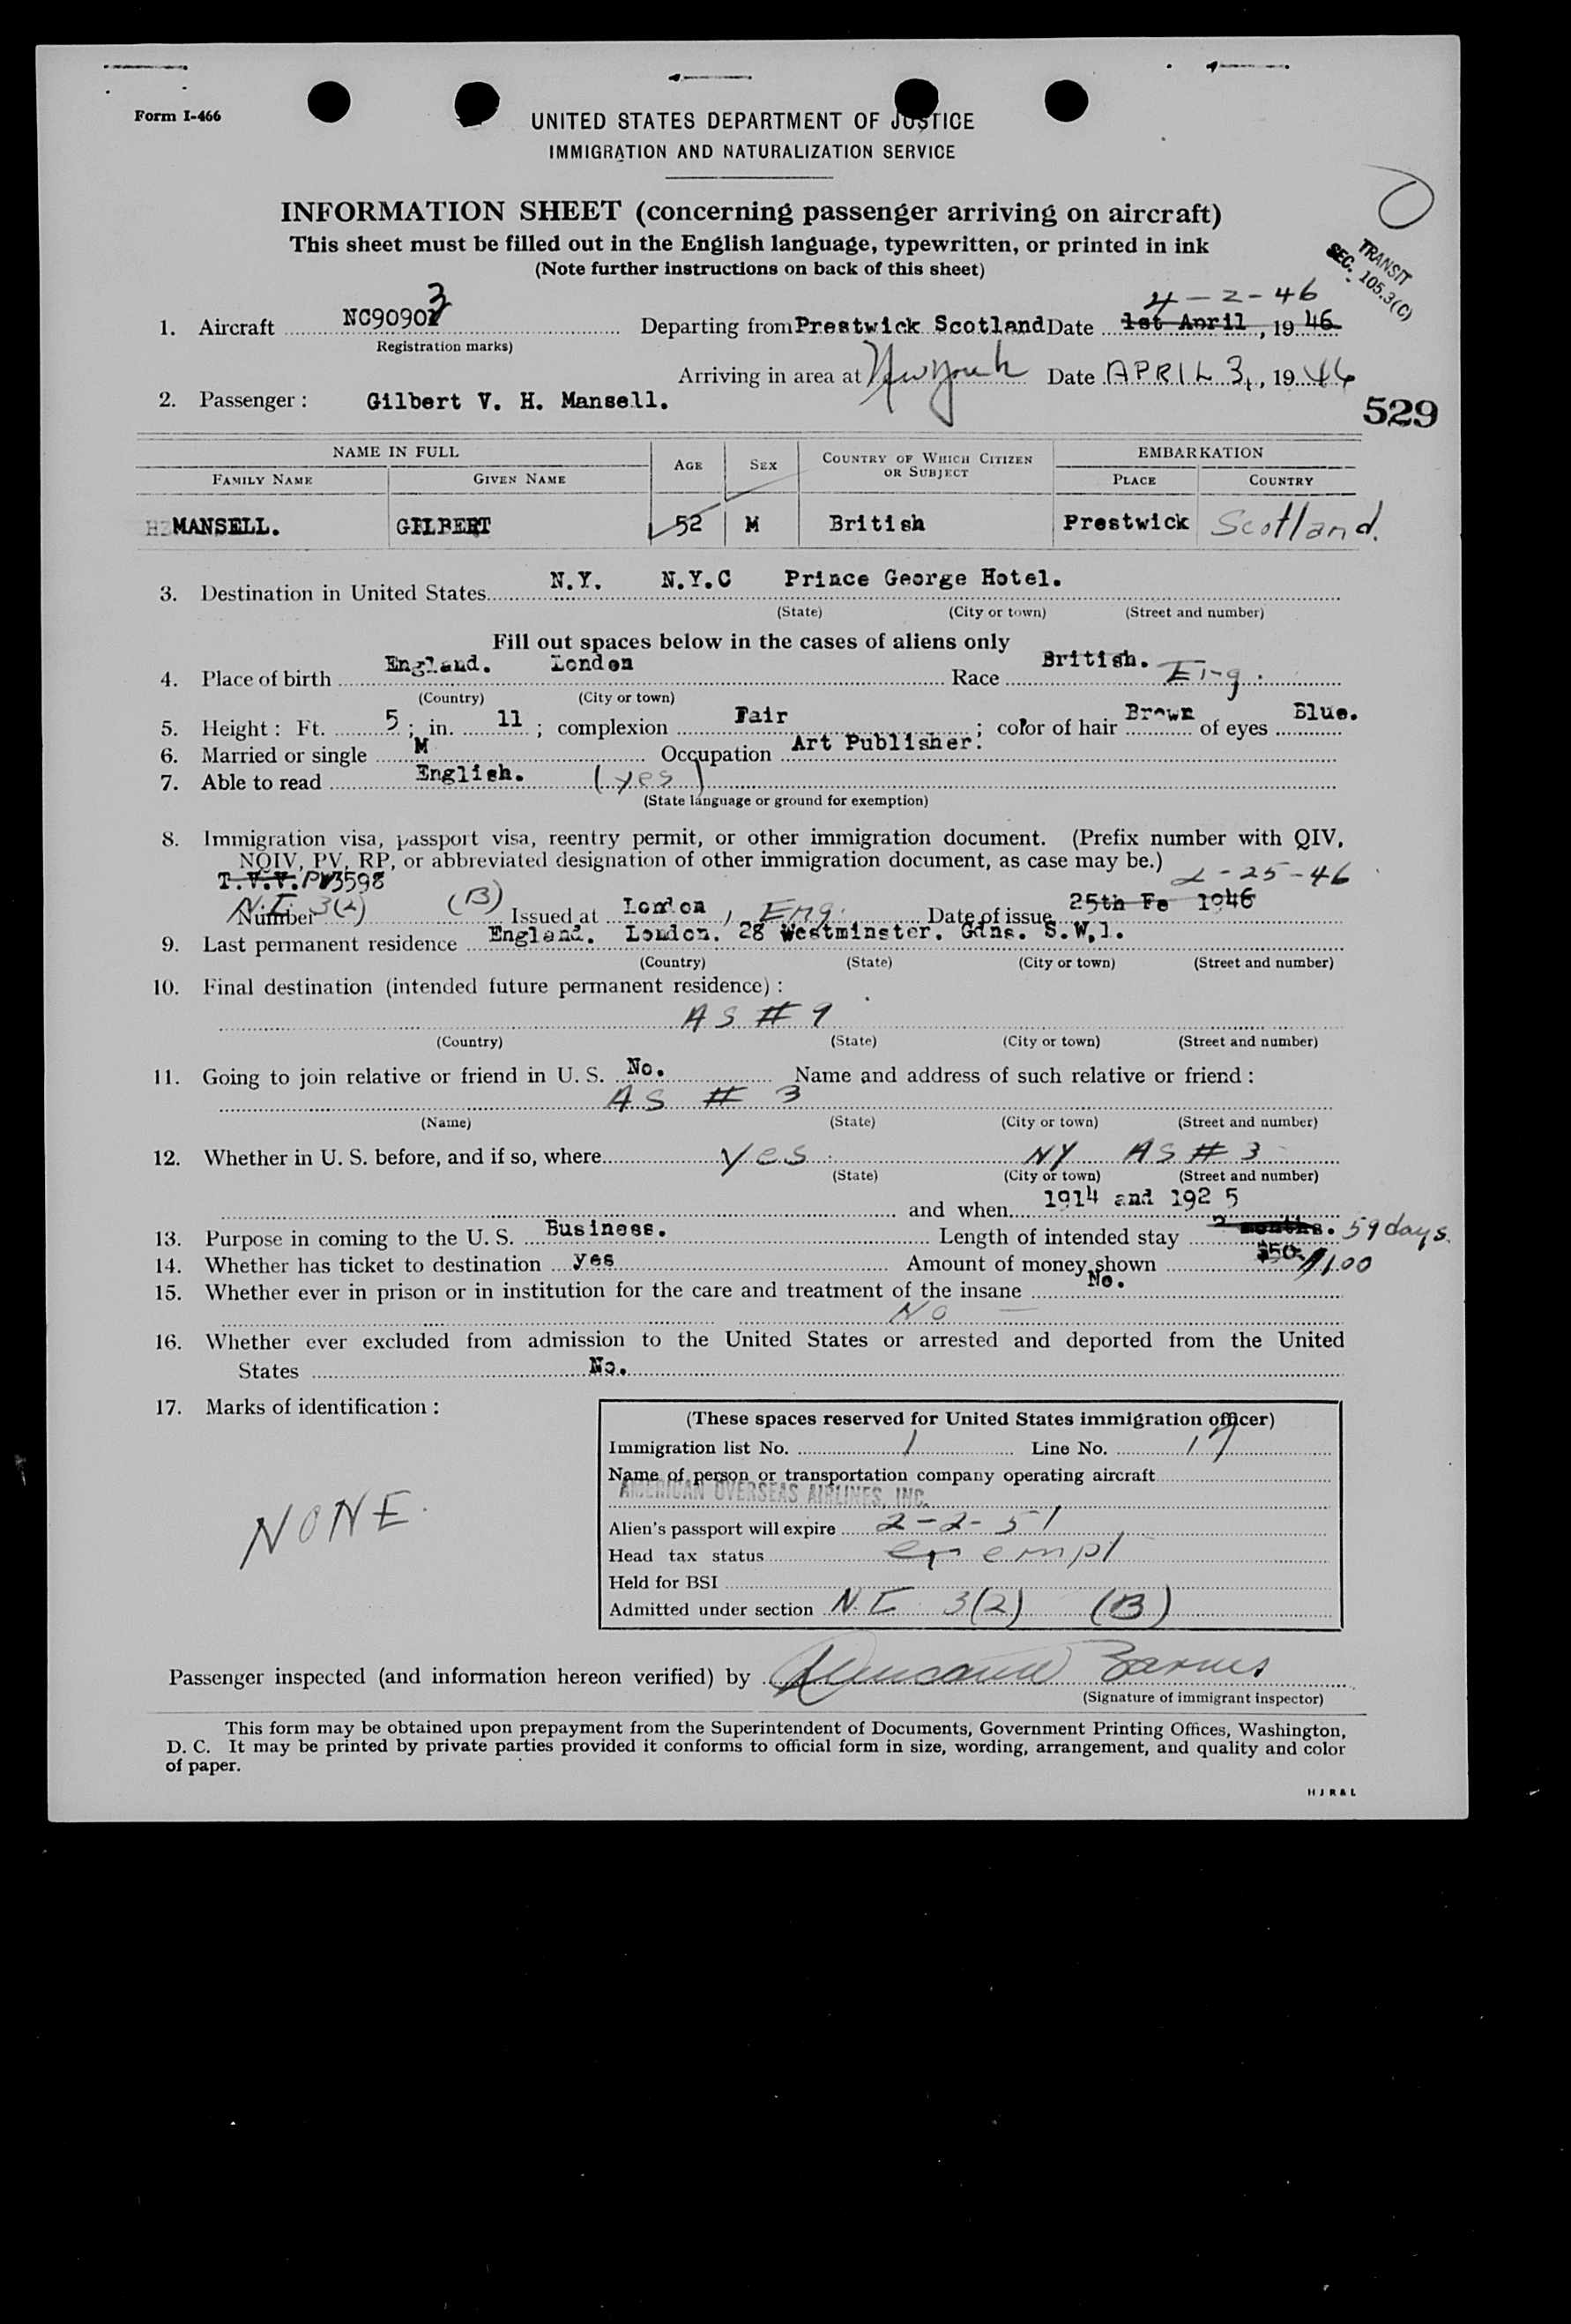 Form I-466
UNITED STATES DEPARTMENT OF JUSTICE
IMMIGRATION AND NATURALIZATION SERVICE
INFORMATION SHEET (concerning passenger arriving on aircraft)
This sheet must be filled out in the English language, typewritten, or printed in ink
(Note further instructions on back of this sheet)
TRANSIT
SEC. 105.3(C)
4-2-46
1. Aircraft NC90903 Departing from Prestwick Scotland Date 1st April, 19 46
Registration marks)
Arriving in area at New York Date APRIL 3, 19 46
2. Passenger: Gilbert V. H. Mansell.
529
NAME IN FULL AGE SEX COUNTRY OF WHICH CITIZEN OR SUBJECT EMBARKATION
FAMILY NAME GIVEN NAME PLACE COUNTRY
MANSELL. GILBERT 52 M British Prestwick Scotland.
3. Destination in United States N.Y. N.Y.C Prince George Hotel.
(State) (City or town) (Street and number)
Fill out spaces below in the cases of aliens only
4. Place of birth England. London Race British. Eng.
(Country) (City or town)
5. Height: Ft. 5; in. 11; complexion Fair; color of hair Brown of eyes Blue.
6. Married or single M Occupation Art Publisher.
7. Able to read English. (yes)
(State language or ground for exemption)
8. Immigration visa, passport visa, reentry permit, or other immigration document. (Prefix number with QIV,
NQIV, PV, RP, or abbreviated designation of other immigration document, as case may be.)
T.V.V. PV3598 2-25-46
Number N.I. 3(2) (B) Issued at London, Eng. Date of issue 25th Fe 1946
9. Last permanent residence England. London. 28 Westminster. Gdns. S.W,1.
(Country) (State) (City or town) (Street and number)
10. Final destination (intended future permanent residence):
AS # 9
(Country) (State) (City or town) (Street and number)
11. Going to join relative or friend in U. S. No. Name and address of such relative or friend:
AS # 3
(Name) (State) (City or town) (Street and number)
12. Whether in U. S. before, and if so, where Yes NY AS # 3
(State) (City or town) (Street and number)
and when 1914 and 192 5
13. Purpose in coming to the U. S. Business. Length of intended stay months. 59 days.
14. Whether has ticket to destination yes Amount of money shown $50. $100
15. Whether ever in prison or in institution for the care and treatment of the insane No.
No
16. Whether ever excluded from admission to the United States or arrested and deported from the United
States No.
17. Marks of identification:
NONE.
(These spaces reserved for United States immigration officer)
Immigration list No. 1 Line No. 17
Name of person or transportation company operating aircraft
AMERICAN OVERSEAS AIRLINES, INC.
Alien's passport will expire 2-2-51
Head tax status exempt
Held for BSI
Admitted under section N.I. 3(2) (B)
Passenger inspected (and information hereon verified) by Barnes
(Signature of immigrant inspector)
This form may be obtained upon prepayment from the Superintendent of Documents, Government Printing Offices, Washington,
D. C. It may be printed by private parties provided it conforms to official form in size, wording, arrangement, and quality and color
of paper.
H J R & L